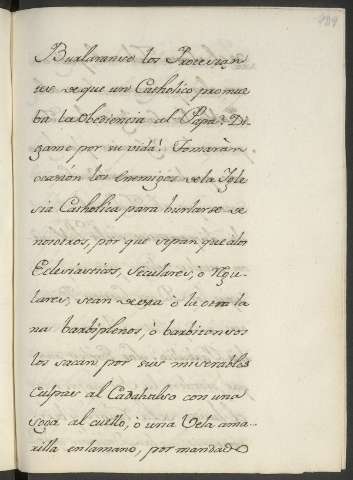 Burlaranse los Protestan
tes de que un Catholico promue
ba la obediencia al Papa? Di-
game por su vida! Tomaràn
ocasion los enemigos de la Igle
sia Catholica para burlarse de
nosotros, por que sepan que alos
Eclesiasticos, Seculares, ò Regu-
lares, sean de esta ò la otra la
na barbiplenos, ò barbitonsos
los sacan por sus miserables
culpas al Cadahalso con una
soga al cuello, ò una Vela ama-
rilla en la mano, por mandado